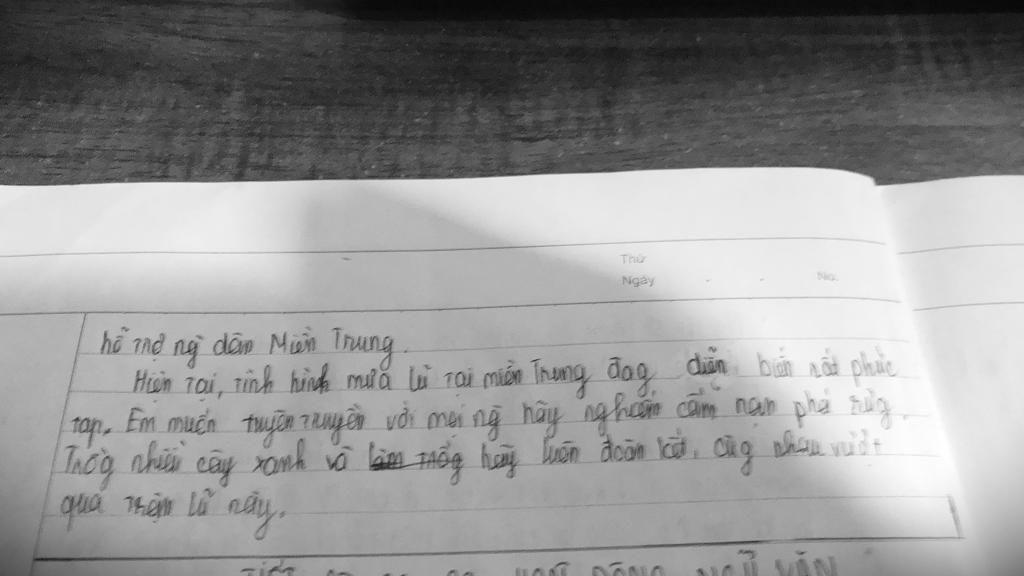 Thứ
Ngày . . No.
hỗ trợ ng dân Miền Trung.
Hiện tại, tình hình mưa lũ tại miền Trung đag diễn biến rất phức
tạp. Em muốn tuyên truyền với mọi ng hãy nghiêm cấm nạn phá rừg.
Trồg nhiều cây xanh và hãy luôn đoàn kết, cùg nhau vượt
qua trận lũ này.